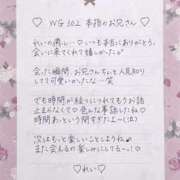 ♡ WG 102 本指のお兄さん ♡
れいの癒し…♡いつも本当にありがとう。
会いに来てくれて嬉しかった♡
会った瞬間、お兄さんちょっと人見知り
してて可愛いかったな…笑
でも時間が経つにつれてもうお話
止まらなくて♡色んな事話した私
時間あっという間すぎたよー(;Д;)
次はもっと楽しいことしようね
また会えるの楽しみにしてるーっ!♡
♡れい♡